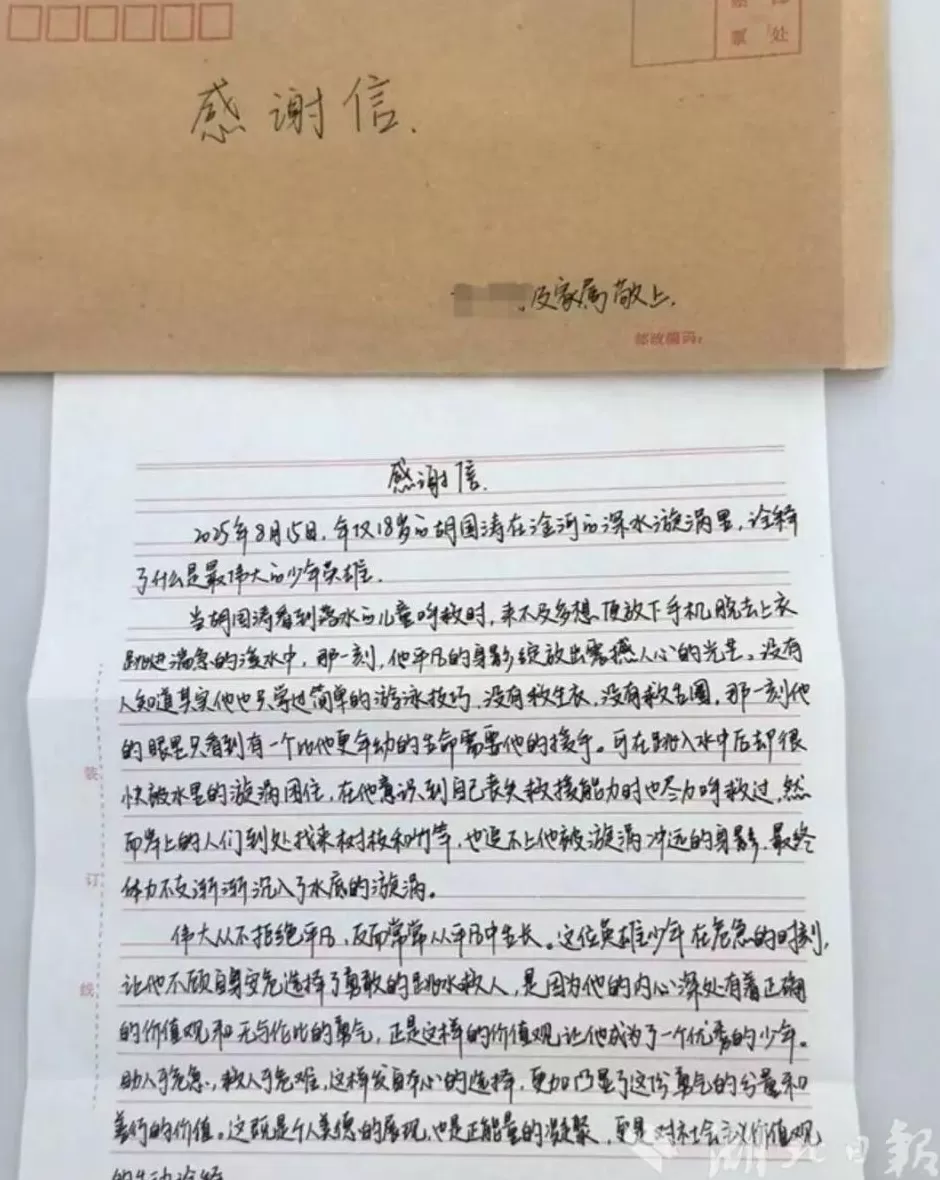 票 处
感谢信.
及家属敬上.
邮政编码:
感谢信.
2025年8月15日,年仅18岁的胡国涛在淦河的深水漩涡里,诠释
了什么是最伟大的少年英雄.
当胡国涛看到落水的儿童呼救时,来不及多想顶放下手机脱去上衣
跳进湍急的漩水中,那一刻,他平凡的身影绽放出震撼人心的光芒。没有
人知道其实他也只学过简单的游泳技巧,没有救生衣,没有救生圈,那一刻他
的眼里只看到有一个比他更年幼的生命需要他的援手。可在跳入水中后却很
快被水里的漩涡困住,在他意识到自己丧失救援能力时也尽力呼救过,然
而岸上的人们到处找来树枝和竹竿,也追不上他被漩涡冲远的身影,最终
体力不支渐渐沉入了水底的漩涡。
伟大从不拒绝平凡,反而常常从平凡中生长。这位英雄少年在危急的时刻,
让他不顾自身安危选择了勇敢的跳水救人,是因为他的内心深处有着正确
的价值观和无与伦比的勇气,正是这样的价值观让他成为了一个优秀的少年。
助人于危急,救人于危难,这样发自本心的选择,更加凸显了这份勇气的分量和
善行的价值。这既是个人美德的展现,也是正能量的凝聚,更是对社会主义价值观
的生动诠释
装
订
线
湖北日報